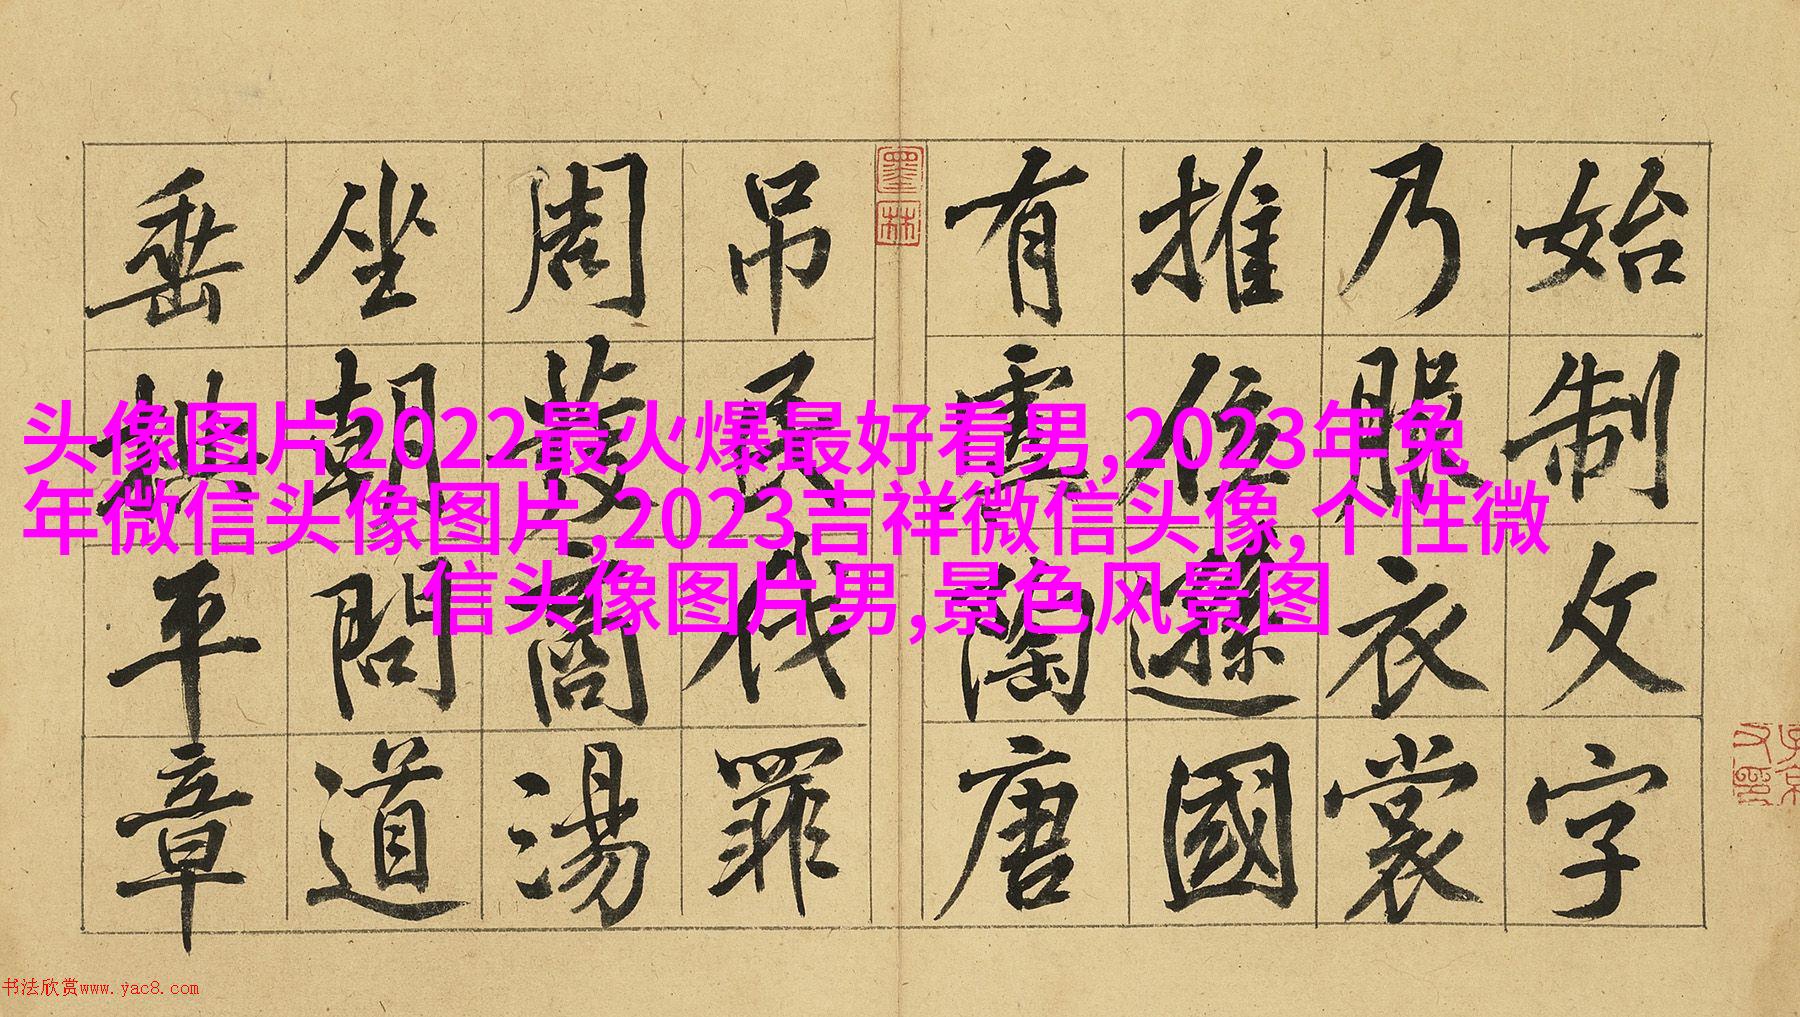 始制文字
乃服衣裳
推位遜國
有虞陶唐
吊民伐罪
周發商湯
坐朝問道
垂拱平章
墨林
头像图片2022最火爆最好看男,2023年兔
年微信头像图片,2023吉祥微信头像,个性微
信头像图片男,景色风景图
书法欣赏www.yac8.com